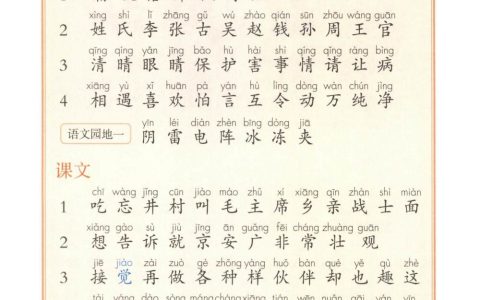 xìng shì lǐ zhāng gǔ wú zhào qián sūn zhōu wáng guān
2 姓 氏 李 张 古 吴 赵 钱 孙 周 王 官
qīng qíng yǎn jīng bǎo hù hài shì qíng qǐng ràng bìng
3 清 晴 眼 睛 保 护 害 事 情 请 让 病
xiāng yù xǐ huān pà yán hù lìng dòng wàn chún jìng
4 相 遇 喜 欢 怕 言 互 令 动 万 纯 净
yīn léi diàn zhèn bīng dòng jiā
语文园地一 阴 雷 电 阵 冰 冻 夹
课文
chī wàng jǐng cūn jiào máo zhǔ xí xiāng qīn zhàn shì miàn
1 吃 忘 井 村 叫 毛 主 席 乡 亲 战 士 面
xiǎng gào sù jiù jīng ān guǎng fēi cháng zhuàng guān
2 想 告 诉 就 京 安 广 非 常 壮 观
jiē jiào zài zuò gè zhǒng yàng huǒ bàn què yě qù zhè
3 接 觉 再 做 各 种 样 伙 伴 却 也 趣 这